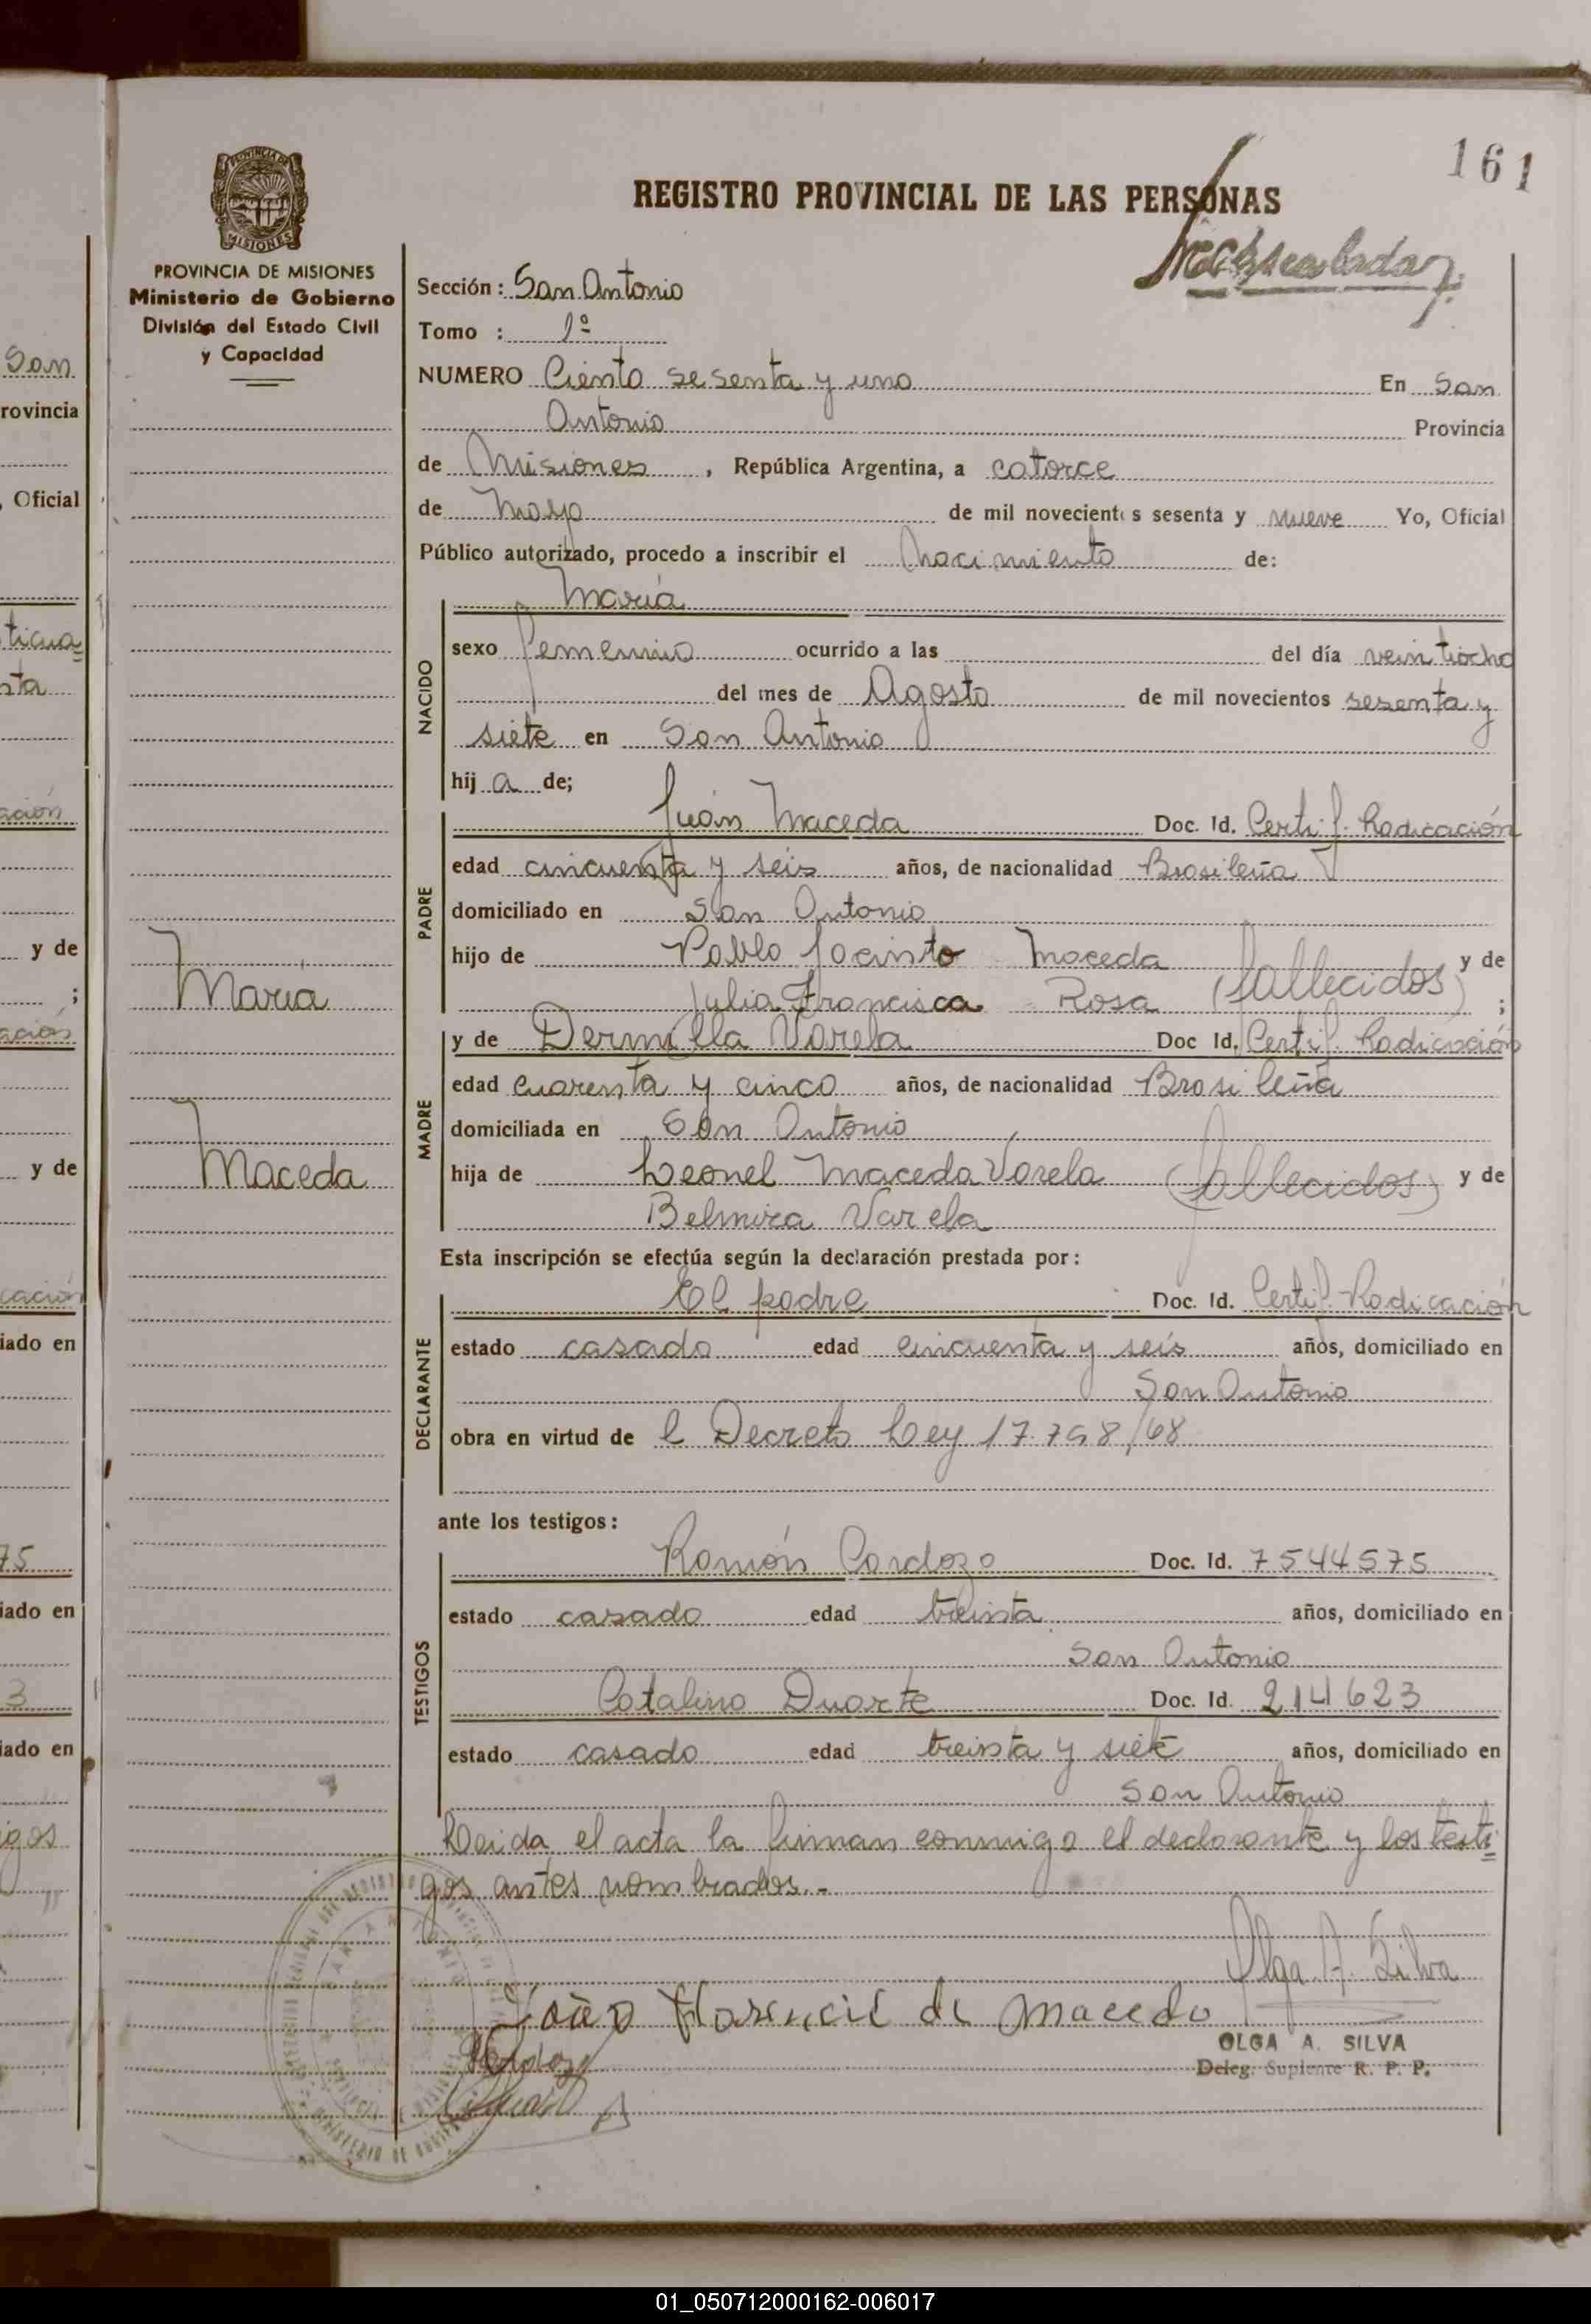 161
REGISTRO PROVINCIAL DE LAS PERSONAS
PROVINCIA DE MISIONES
Ministerio de Gobierno
División del Estado Civil
y Capacidad
María
Maceda
Sección: San Antonio
Tomo : 1º
NUMERO Ciento sesenta y uno En San
Antonio Provincia
de Misiones, República Argentina, a catorce
de Mayo de mil novecientos sesenta y nueve Yo, Oficial
Público autorizado, procedo a inscribir el Nacimiento de:
María
NACIDO
sexo femenino ocurrido a las del día veintiocho
del mes de Agosto de mil novecientos sesenta y
siete en San Antonio
hij a de;
PADRE
Juán Maceda Doc. Id. Certif. Radicación
edad cincuenta y seis años, de nacionalidad Brasileña
domiciliado en San Antonio
hijo de Pablo Jacinto Maceda (fallecidos) y de
Julia Francisca Rosa ;
MADRE
y de Dermella Varela Doc Id. Certif. Radicación
edad cuarenta y cinco años, de nacionalidad Brasileña
domiciliada en San Antonio
hija de Leonel Maceda Varela (fallecidos) y de
Belmira Varela
Esta inscripción se efectúa según la declaración prestada por:
DECLARANTE
El padre Doc. Id. Certif. Radicación
estado casado edad cincuenta y seis años, domiciliado en
San Antonio
obra en virtud de l Decreto Ley 17.798/68
ante los testigos:
TESTIGOS
Ramón Cardozo Doc. Id. 7544575
estado casado edad treinta años, domiciliado en
San Antonio
Catalino Duarte Doc. Id. 214623
estado casado edad treinta y siete años, domiciliado en
San Antonio
Leida el acta la firman conmigo el declarante y los testi=
gos antes nombrados.-
Olga A. Silva
João Florencil de Macedo
OLGA A. SILVA
Deleg. Suplente R. P. P.
01_050712000162-006017